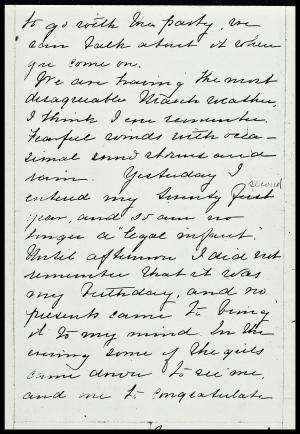 to go with the party, we
can talk about it when
you come on.
We are having the most
disagreeable March weather,
I think I ever remember.
Fearful winds with occa-
sional snow storms and
rain. Yesterday I
entered my Twenty First second
year, and so am no
longer a "legal infant".
Until afternoon I did not
remember that it was
my birthday, and no
presents came to bring
it to my mind. In the
evening some of the girls
came down to see me,
and one to congratulate